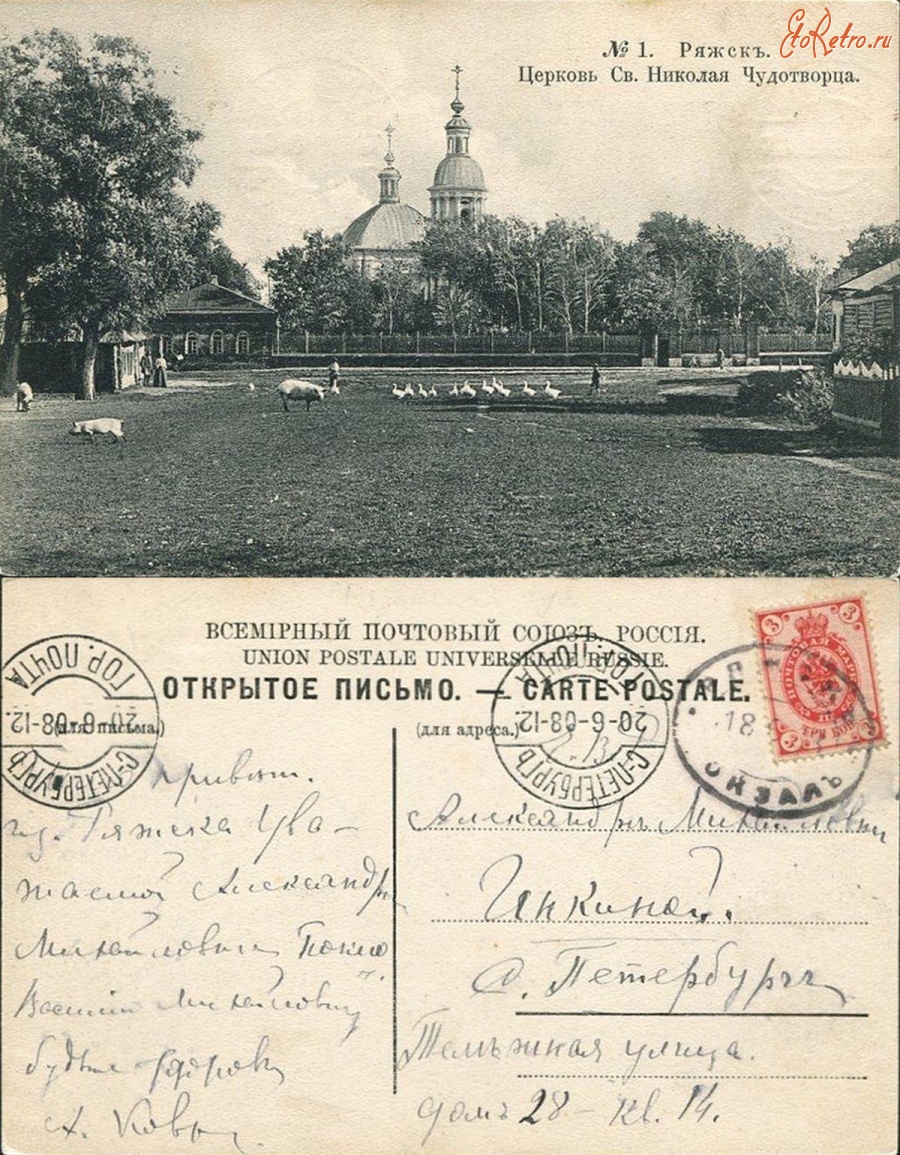 EtoRetro.ru
№ 1. Ряжскъ.
Церковь Св. Николая Чудотворца.
ВСЕМІРНЫЙ ПОЧТОВЫЙ СОЮЗЪ. РОССІЯ.
UNION POSTALE UNIVERSELLE RUSSIE.
ОТКРЫТОЕ ПИСЬМО. — CARTE POSTALE.
(для письма.)
(для адреса.)
ГОР. ПОЧТА
20-6-08-12
С-ПЕТЕРБУРГЪ
ГОР. ПОЧТА
20-6-08-12
С-ПЕТЕРБУРГЪ
3 3
ПОЧТОВАЯ МАРКА
ТРИ КОП.
3 3
18
ВОКЗАЛЪ
Привѣт
из Ряжска Ува-
жаемой Александрѣ
Михайловнѣ
Василію Михайловичу
будьте здоровы
А.
Александрѣ Михайловнѣ
Инкиной.
С. Петербургъ
улица.
домъ 28 – кв. 14.